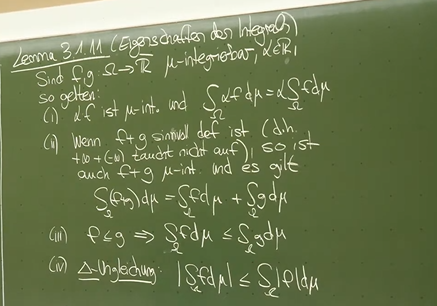 Lemma 3.1.11 (Eigenschaften des Integrals)
Sind f,g Ω→ℝ̅ μ-integrierbar, α∈ℝ,
so gelten:
(i) αf ist μ-int. und ∫_Ω αf dμ = α∫_Ω f dμ
(ii) Wenn f+g sinnvoll def ist (d.h.
+∞ + (-∞) taucht nicht auf), so ist
auch f+g μ-int. und es gilt
∫_Ω (f+g) dμ = ∫_Ω f dμ + ∫_Ω g dμ
(iii) f ≤ g ⇒ ∫_Ω f dμ ≤ ∫_Ω g dμ
(iv) Δ-Ungleichung: |∫_Ω f dμ| ≤ ∫_Ω |f| dμ